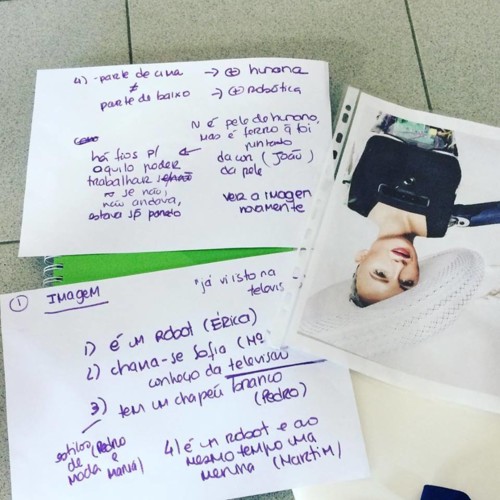 4) - parte de cima → ⊕ humana
≠
parte de baixo → ⊕ robótica
Ñ é pele de humano,
mas é ferro q̃ foi
pintado
da cor (João)
da pele
há fios p/
aquilo poder
trabalhar
se não,
não andava,
estava só parado
ver a imagem
novamente
① IMAGEM
"já vi isto na
televis
1) é um robot (Érica)
2) chama-se Sofia (
conheço da televisão
3) tem um chapéu branco
(Pedro)
estilos
de (Pedro
moda e
Maria)
4) é um robot e ao
mesmo tempo uma
menina (Martim)